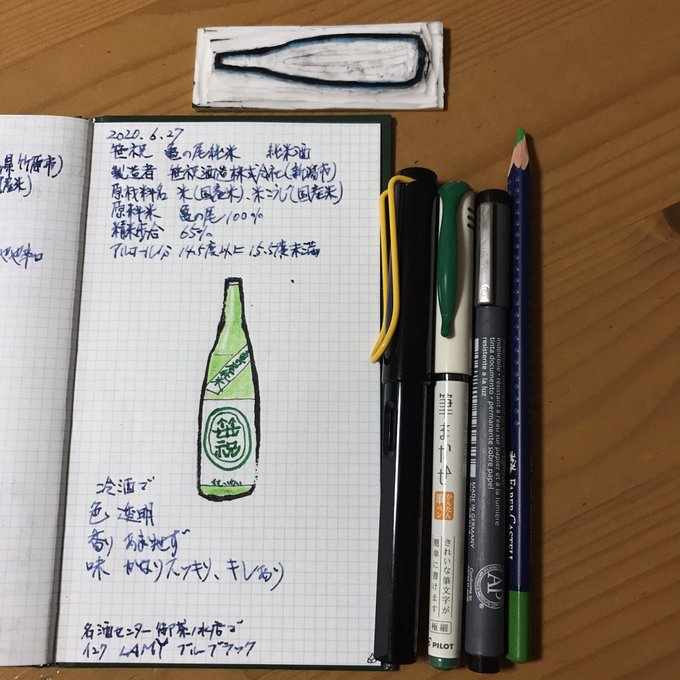 県竹原市)
産米)
2020.6.27
笹祝 亀の尾純米 純米酒
製造者 笹祝酒造株式会社(新潟市)
原材料名 米(国産米)、米こうじ(国産米)
原料米 亀の尾100%
精米歩合 65%
アルコール分 14.5度以上15.5度未満
亀の尾純米
笹祝
冷酒で
色 透明
香り あまりせず
味 かなりスッキリ、キレあり
名酒センター御茶ノ水店で
インク LAMY ブルーブラック
筆まかせ
かんたん
筆ペン
きれいな筆文字が
簡単に書けます
極細
PILOT
Indélébile · résistant à l'eau sur papier et à la lumière
tinta documento · permanente sobre papel
resistente a la luz
MADE IN GERMANY
AP
FABER-CASTELL